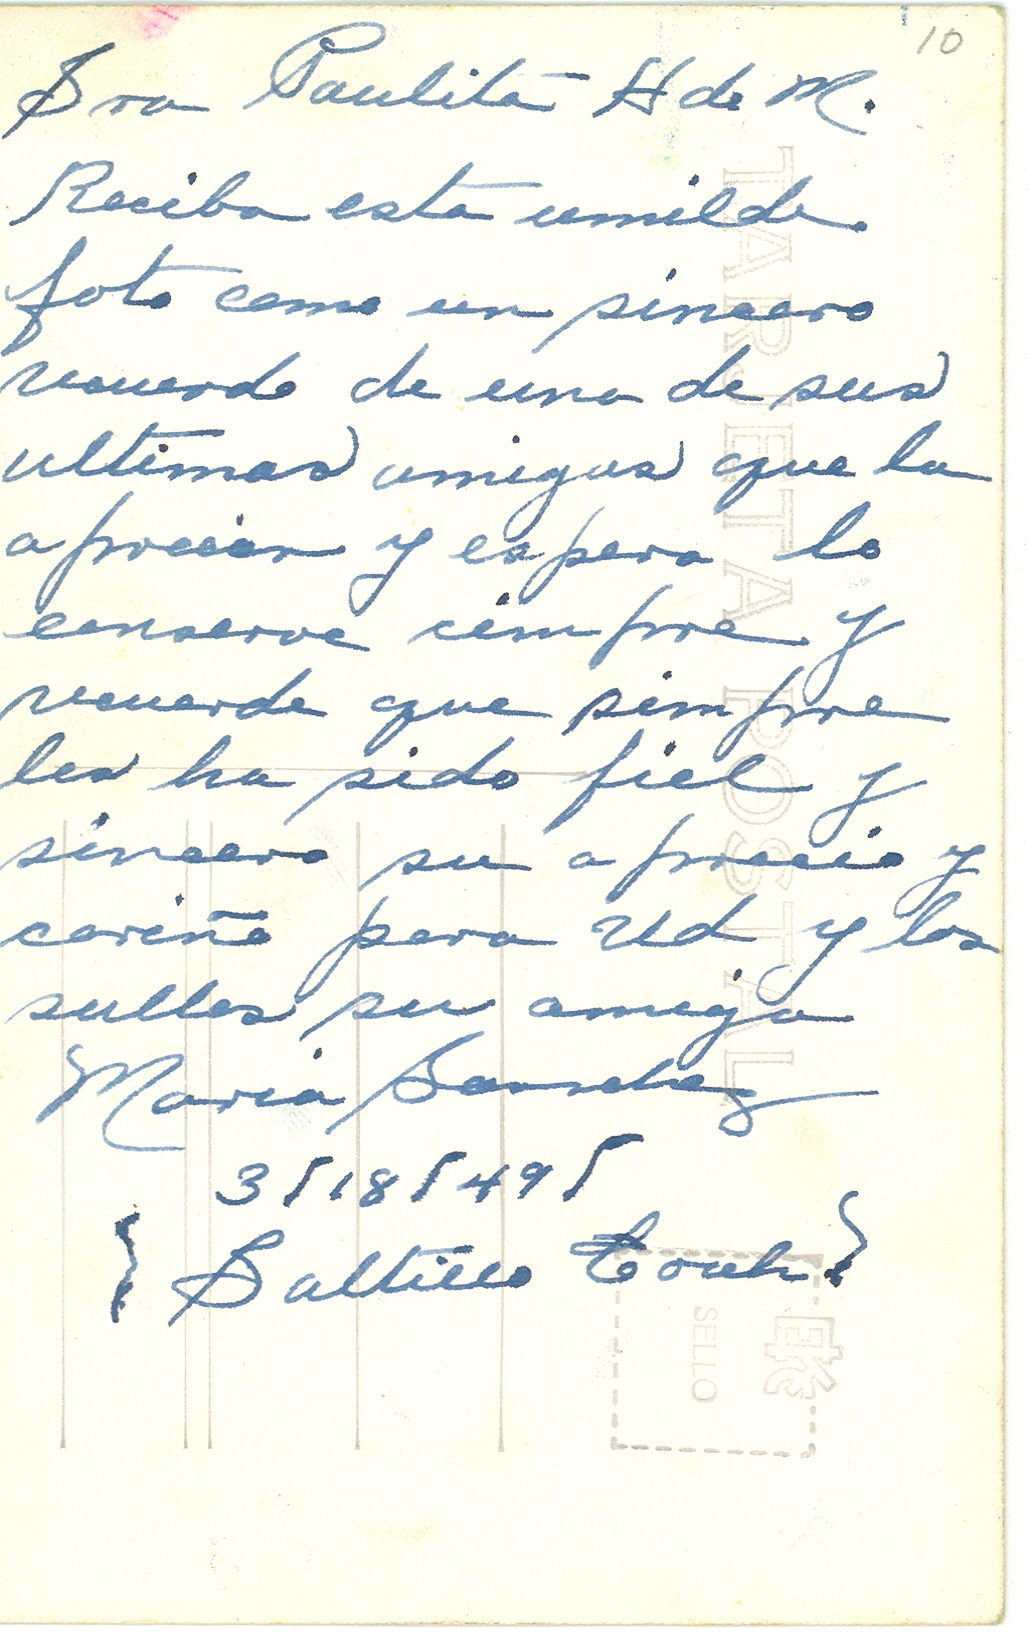 10
Sra Paulita H de M.
Reciba esta umilde
foto como un sincero
recuerdo de una de sus
ultimas amigas que la
aprecian y espera lo
conserve cimpre y
recuerde que simpre
les ha sido fiel y
sincero su aprecio y
cariño para Ud y los
sulles su amiga
Maria Sanchez
3/18/49/
{ Saltillo Coah. }
TARJETA POSTAL
SELLO
EKC